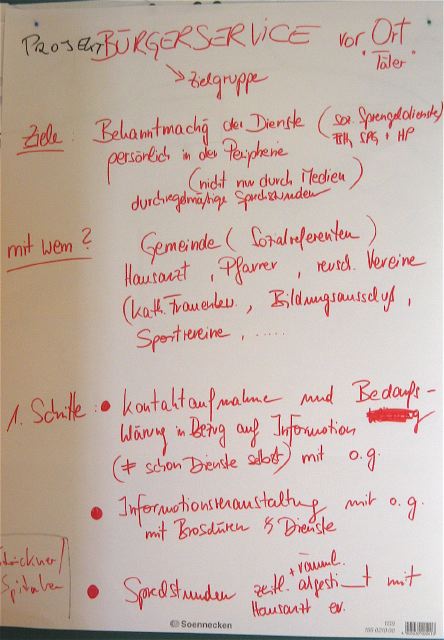 PROJEKT BÜRGERSERVICE vor Ort
"Täler"
↘ Zielgruppe
Ziele: Bekanntmachg der Dienste (soz. Sprengeldienste
SPG + HP
persönlich in der Peripherie
(nicht nur durch Medien)
durch regelmäßige Sprechstunden
mit wem? Gemeinde (Sozialreferenten)
Hausarzt, Pfarrer, versch. Vereine
(kath. Frauenbew., Bildungsausschuß,
Sportvereine, .....
1. Schritte: • Kontaktaufnahme und Bedarfs-
klärung in Bezug auf Information
(≠ schon Dienste selbst) mit o.g.
• Informationsveranstaltung mit o.g.
mit Broschüren & Dienste
• Sprechstunden zeitl. + räuml. abgestimt mit
Hausarzt ev.
Stöckner/
Spitaler
Soennecken